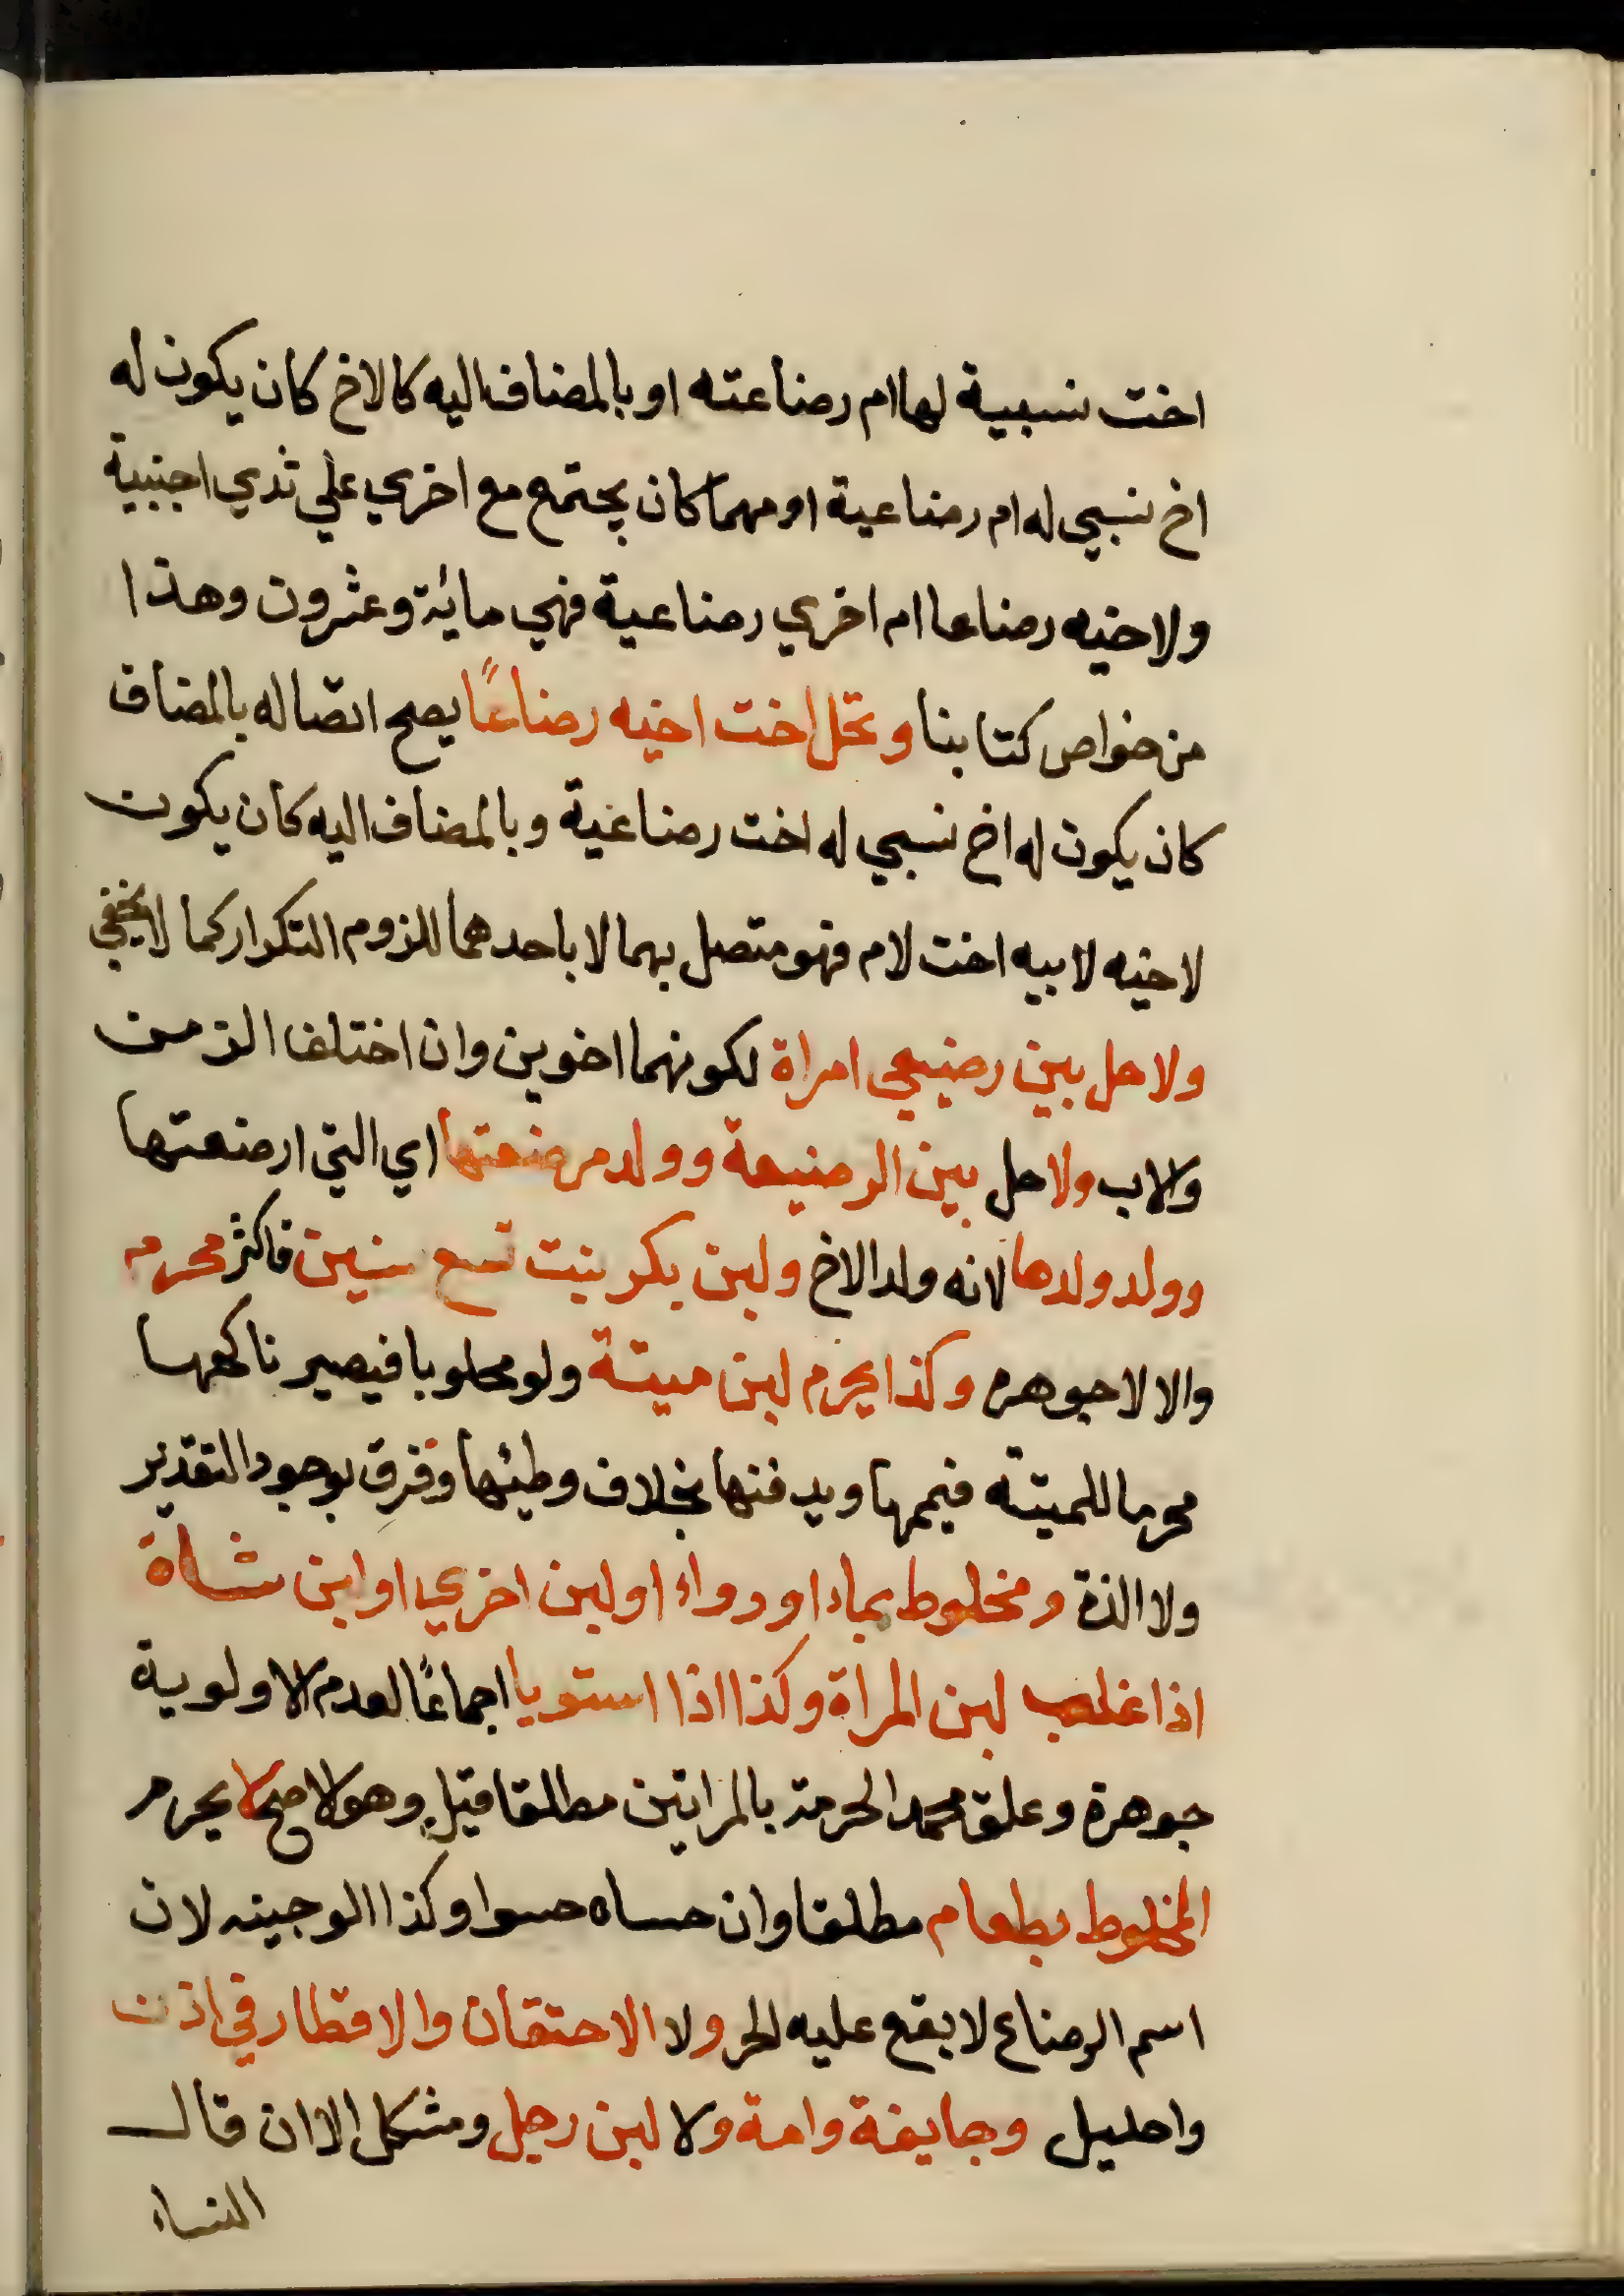 اخت نسبية لها ام رضاعته او بالمضاف اليه كالاخ كان يكون له
اخ نسبي له ام رضاعية او مهما كان يجتمع مع اخري علي ثدي اجنبية
ولاخيه رضاعا ام اخري رضاعية فهي مائة وعشرون وهذا
من خواص كتابنا وتحل اخت اخيه رضاعًا يصح اتصاله بالمضاف
كان يكون له اخ نسبي له اخت رضاعية وبالمضاف اليه كان يكون
لاخيه لابيه اخت لام فهو متصل بهما لا باحدهما للزوم التكرار كما لا يخفي
ولا حل بين رضيعي امراة لكونهما اخوين وان اختلف الزمن
والاب ولا حل بين الرضيعة وولد مرضعتها اي التي ارضعتها
وولد ولدها لانه ولد الاخ ولبن بكر بنت تسع سنين فاكثر محرم
والا لا جوهره وكذا يحرم لبن ميتة ولو محلوبا فيصير ناكحها
محرما للميتة فيممها ويدفنها بخلاف وطيئها وفرق بوجود التقدير
ولا الذة ومخلوط بماء او دواء او لبن اخري او لبن شاة
اذا غلب لبن المراة وكذا اذا استويا اجماعًا لعدم الاولوية
جوهرة وعلق محمد الحرمة بالمراتين مطلقا قيل وهو الاصح لا يحرم
المخلوط بطعام مطلقا وان حساه حسوا وكذا الو جبنه لان
اسم الرضاع لا يقع عليه بحر ولا الاحتقان والاقطار في اذن
واحليل وجايفة وامة ولا لبن رجل ومشكل الا ان قال
النساء